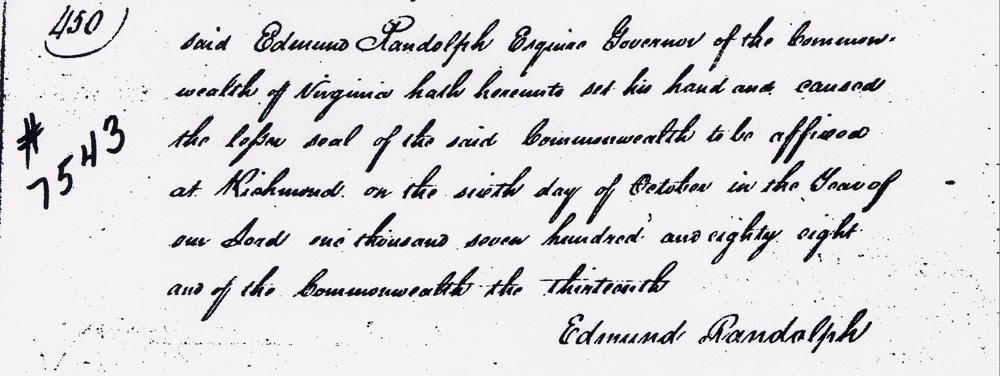 450
# 7543
said Edmund Randolph Esquire Governor of the Common-
wealth of Virginia hath hereunto set his hand and caused
the leſser seal of the said Commonwealth to be affixed
at Richmond on the sixth day of October in the Year of
our Lord one thousand seven hundred and eighty eight
and of the Commonwealth the thirteenth
Edmund Randolph